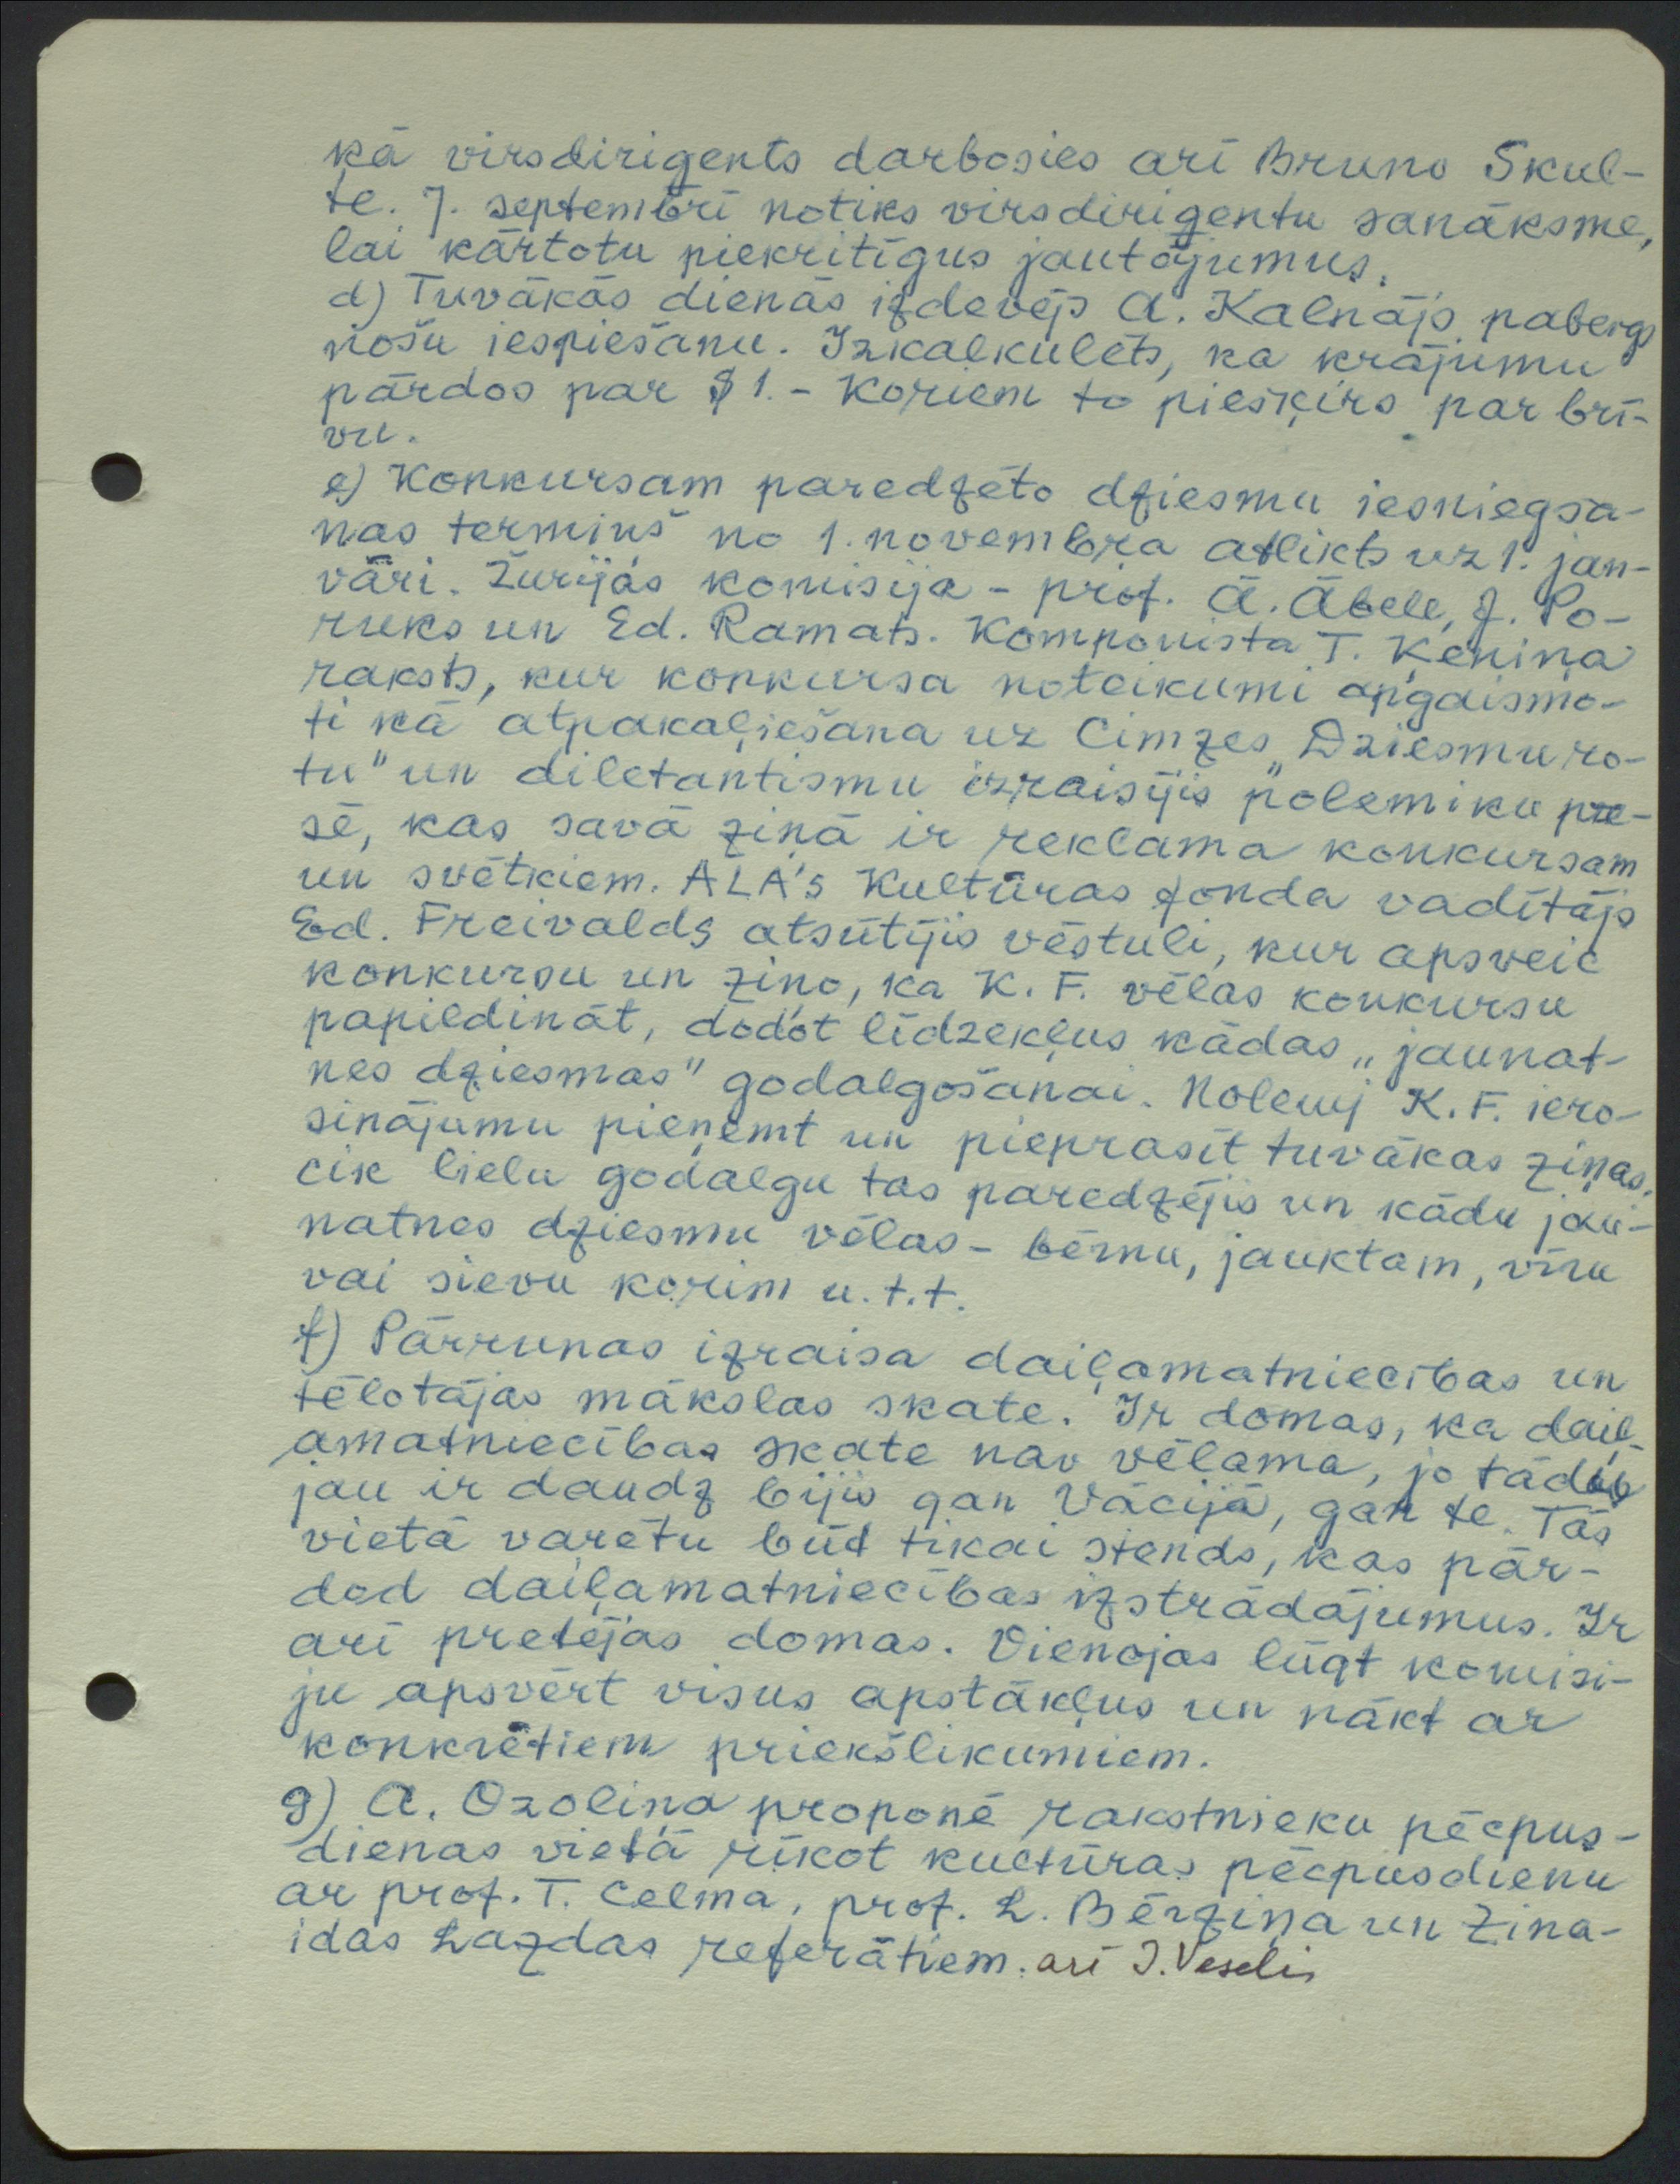 kā virsdirigents darbosies arī Bruno Skul-
te. 7. septembrī notiks virsdirigentu sanāksme,
lai kārtotu piekritīgus jautājumus.
d) Tuvākās dienās izdevējs A. Kalnājs pabeigs
nošu iespiešanu. Izkalkulēts, ka krājumu
pārdos par $1.- Koriem to piešķirs par brī-
vu.
e) Konkursam paredzēto dziesmu iesniegša-
nas termiņš no 1. novembra atlikts uz 1. jan-
vāri. Žurijas komisija - prof. Ā. Ābele, J. Po-
ruks un Ed. Ramats. Komponista T. Ķeniņa
raksts, kur konkursa noteikumi apgaismo-
ti kā atpakaļiešana uz Cimzes „Dziesmu ro-
tu" un diletantismu izraisījis polemiku pre-
sē, kas savā ziņā ir reklama konkursam
un svētkiem. ALA's Kultūras fonda vadītājs
Ed. Freivalds atsūtījis vēstuli, kur apsveic
konkursu un ziņo, ka K. F. vēlas konkursu
papildināt, dodot līdzekļus kādas „jaunat-
nes dziesmas" godalgošanai. Nolemj K. F. iero-
sinājumu pieņemt un pieprasīt tuvākas ziņas,
cik lielu godalgu tas paredzējis un kādu jau-
natnes dziesmu vēlas - bērnu, jauktam, vīru
vai sievu korim u.t.t.
f) Pārrunas izraisa daiļamatniecības un
tēlotājas mākslas skate. Ir domas, ka daiļ-
amatniecības skate nav vēlama, jo tādas
jau ir daudz bijis gan Vācijā, gan te. Tās
vietā varētu būt tikai stends, kas pār-
dod daiļamatniecības izstrādājumus. Ir
arī pretējas domas. Vienojas lūgt komisi-
ju apsvērt visus apstākļus un nākt ar
konkrētiem priekšlikumiem.
g) A. Ozoliņa proponē rakstnieku pēcpus-
dienas vietā rīkot kultūras pēcpusdienu
ar prof. T. Celma, prof. L. Bērziņa un Zina-
idas Lazdas referātiem. arī J. Veselis